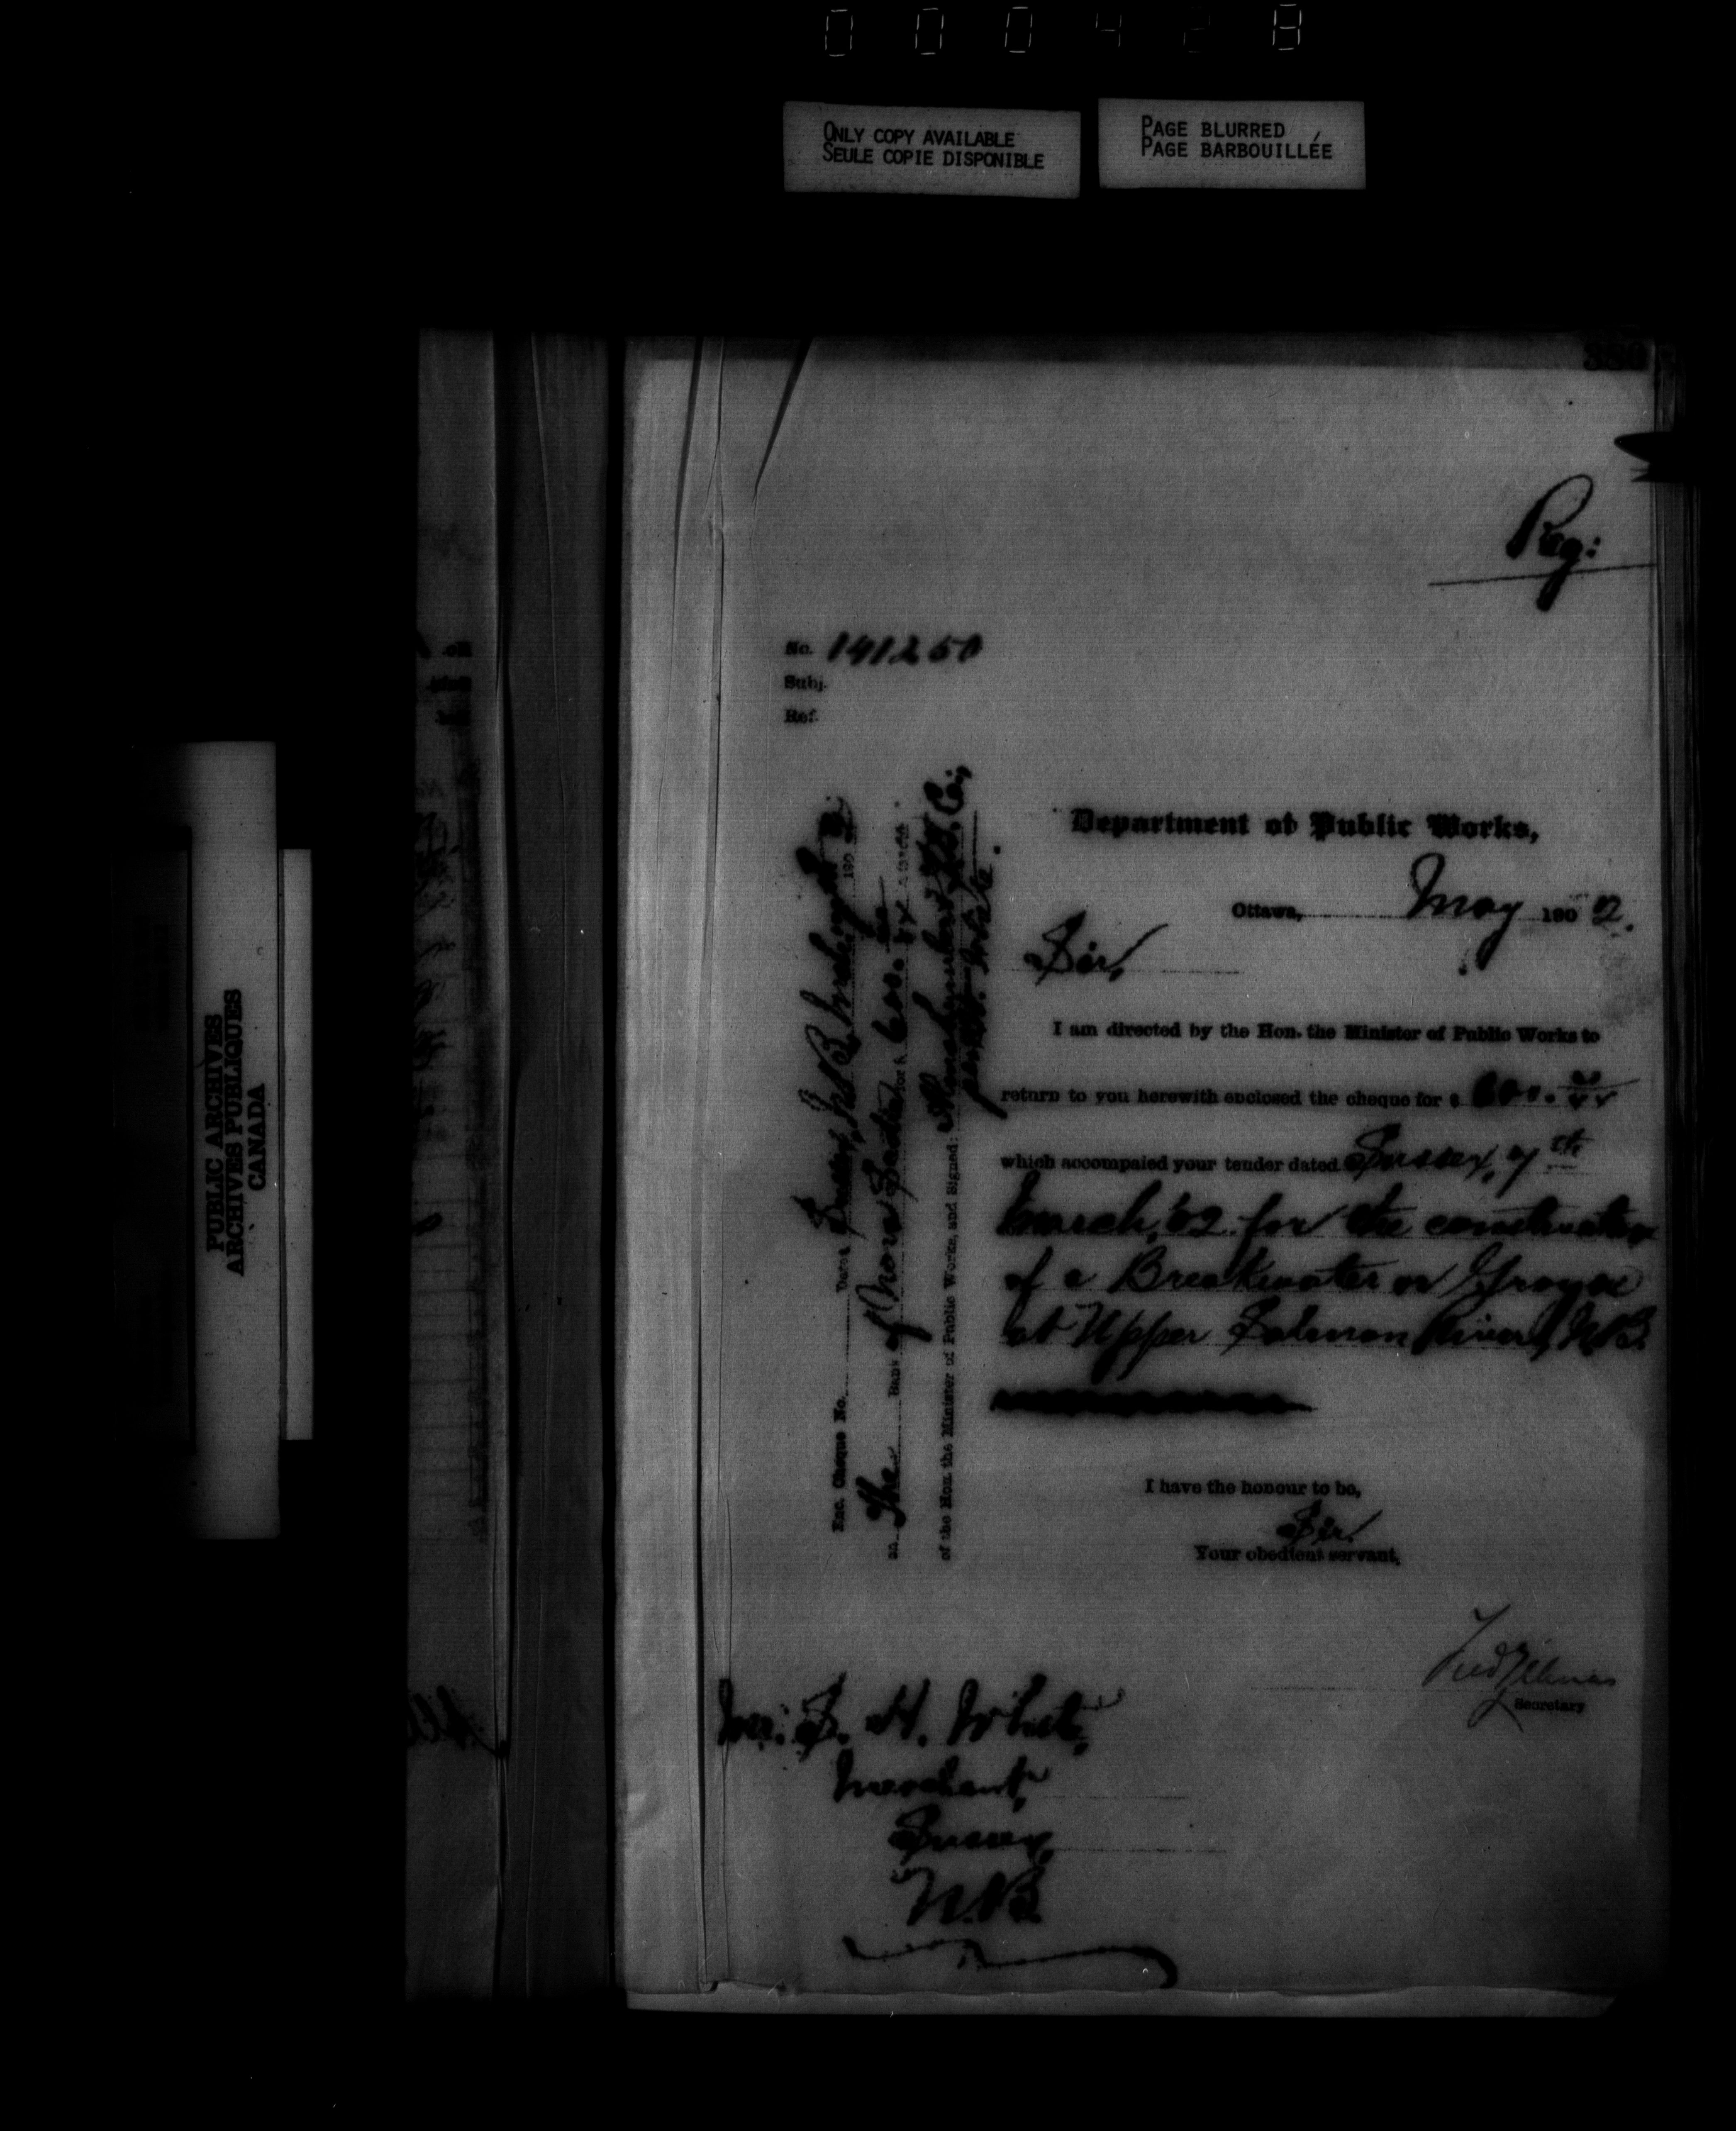 000428
ONLY COPY AVAILABLE
SEULE COPIE DISPONIBLE
PAGE BLURRED
PAGE BARBOUILLÉE
PUBLIC ARCHIVES
ARCHIVES PUBLIQUES
CANADA
Reg:
No. 141250
Subj.
Ref.
Department of Public Works,
Ottawa, May 1902.
Sir,
I am directed by the Hon. the Minister of Public Works to
return to you herewith enclosed the cheque for $ 600.
which accompaied your tender dated Sussex, 7th
March, '02 for the construction
of a Breakwater or Groyne
at Upper Salmon River, N.B.
I have the honour to be,
Sir,
Your obedient servant,
Secretary
Enc. Cheque No. Dated Sussex, N.B.
on The Bank of Nova Scotia for $ 600.
of the Hon. the Minister of Public Works, and Signed:
White.
Mr. S. H. White,
Merchant,
Sussex,
N.B.